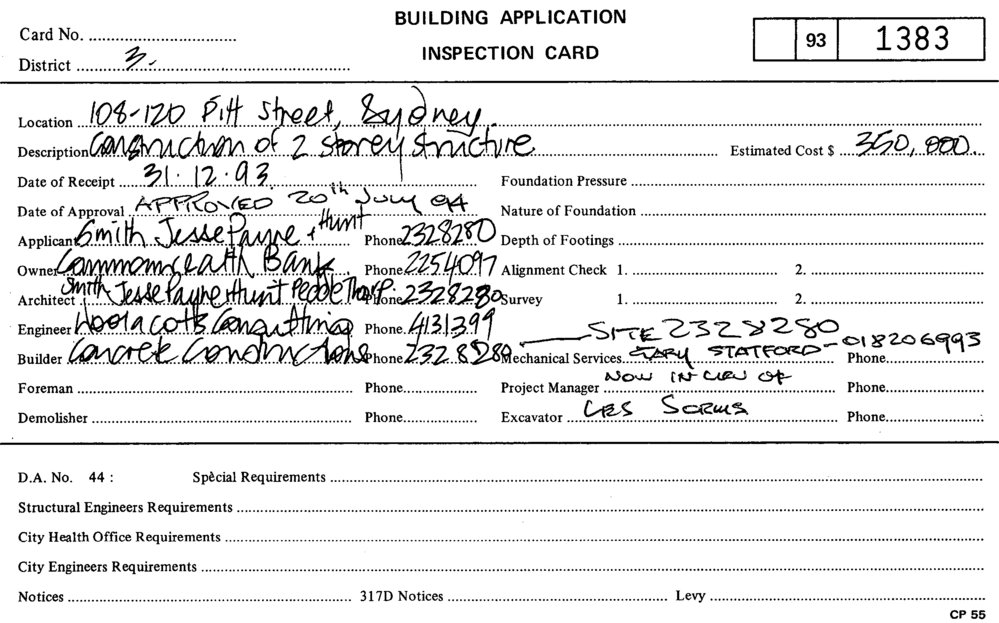 BUILDING APPLICATION
Card No.
INSPECTION CARD
93 1383
District 3.
Location 108-120 Pitt Street, Sydney.
Description Construction of 2 storey structure Estimated Cost $ 350,000.
Date of Receipt 31.12.93 Foundation Pressure
Date of Approval APPROVED 20th July 94 Nature of Foundation
Applicant Smith Jesse Payne + Hunt Phone 2328280 Depth of Footings
Owner Commonwealth Bank Phone 2254097 Alignment Check 1. 2.
Architect Smith Jesse Payne Hunt Peddle Thorp. Phone 2328280 Survey 1. 2.
Engineer Woolacotts Consulting Phone 4131399 SITE 2328280
Builder Concrete Constructions Phone 2328280 Mechanical Services GARY STATFORD - 018206993 Phone
Foreman Phone Project Manager NOW IN LIEU OF Phone
Demolisher Phone Excavator LES Phone
D.A. No. 44 : Spècial Requirements
Structural Engineers Requirements
City Health Office Requirements
City Engineers Requirements
Notices 317D Notices Levy
CP 55